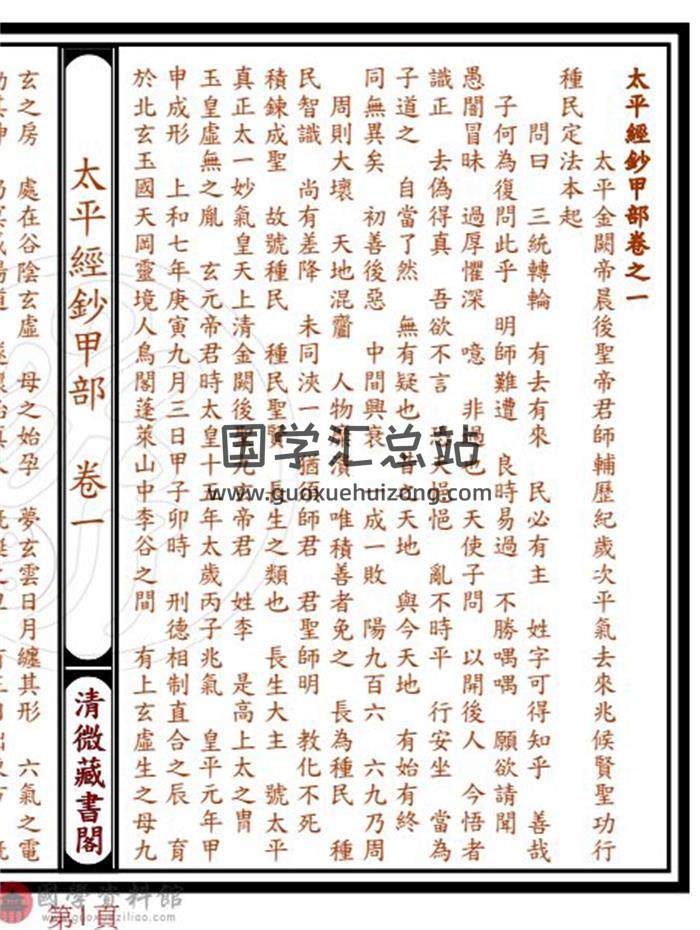 太平經鈔甲部卷之一
太平金闕帝晨後聖帝君師輔歷紀歲次平氣去來兆候賢聖功行
種民定法本起
問曰 三統轉輪 有去有來 民必有主 姓字可得知乎 善哉
子何為復問此乎 明師難遭 良時易過 不勝喁喁 願欲請聞
愚闇冒昧 過厚懼深 噫 非過也 天使子問 以開後人 今悟者
識正 去偽得真 吾欲不言 悒 亂不時平 行安坐 當為
子道之 自當了然 無有疑也 昔之天地 與今天地 有始有終
同無異矣 初善後惡 中間興衰 一成一敗 陽九百六 六九乃周
周則大壞 天地混齏 人物 唯積善者免之 長為種民 種
民智識 尚有差降 未同浹一 猶須師君 君聖師明 教化不死
積鍊成聖 故號種民 種民聖賢 長生之類也 長生大主 號太平
真正太一妙氣皇天上清金闕後聖九玄帝君 姓李 是高上太之冑
玉皇虛無之胤 玄元帝君時太皇十五年太歲丙子兆氣 皇平元年甲
申成形 上和七年庚寅九月三日甲子卯時 刑德相制直合之辰 育
於北玄玉國天岡靈境人鳥閣蓬萊山中李谷之間 有上玄虛生之母九
太平經鈔甲部 卷一
清微藏書閣
玄之房 處在谷陰玄虛 母之始孕 夢玄雲日月纏其形 六氣之電
国学汇总站
www.guoxuehuizong.com
國學資料館
www.guoxueziliao.com
第1頁